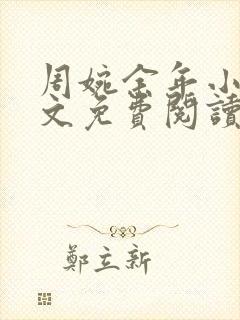 周婉金年小
文免費閱讀
鄭立新